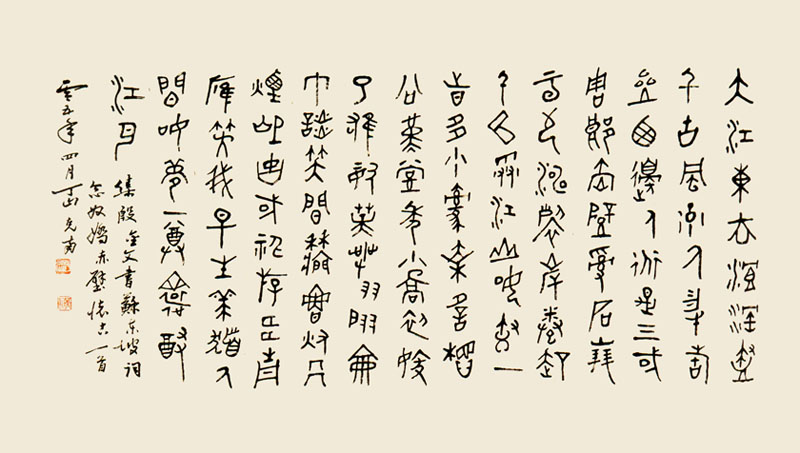 大江東去浪淘盡
千古風流人物故
壘西邊人道是三國
周郎赤壁亂石崩
雲驚濤裂岸捲起
千堆雪江山如畫一
時多少豪傑遙想
公瑾當年小喬初嫁
了雄姿英發羽扇綸
巾談笑間檣櫓灰飛
煙滅故國神遊多情
應笑我早生華髮人
間如夢一尊還酹
江月
集殷金文書蘇東坡詞
念奴嬌赤壁懷古一首
五年四月